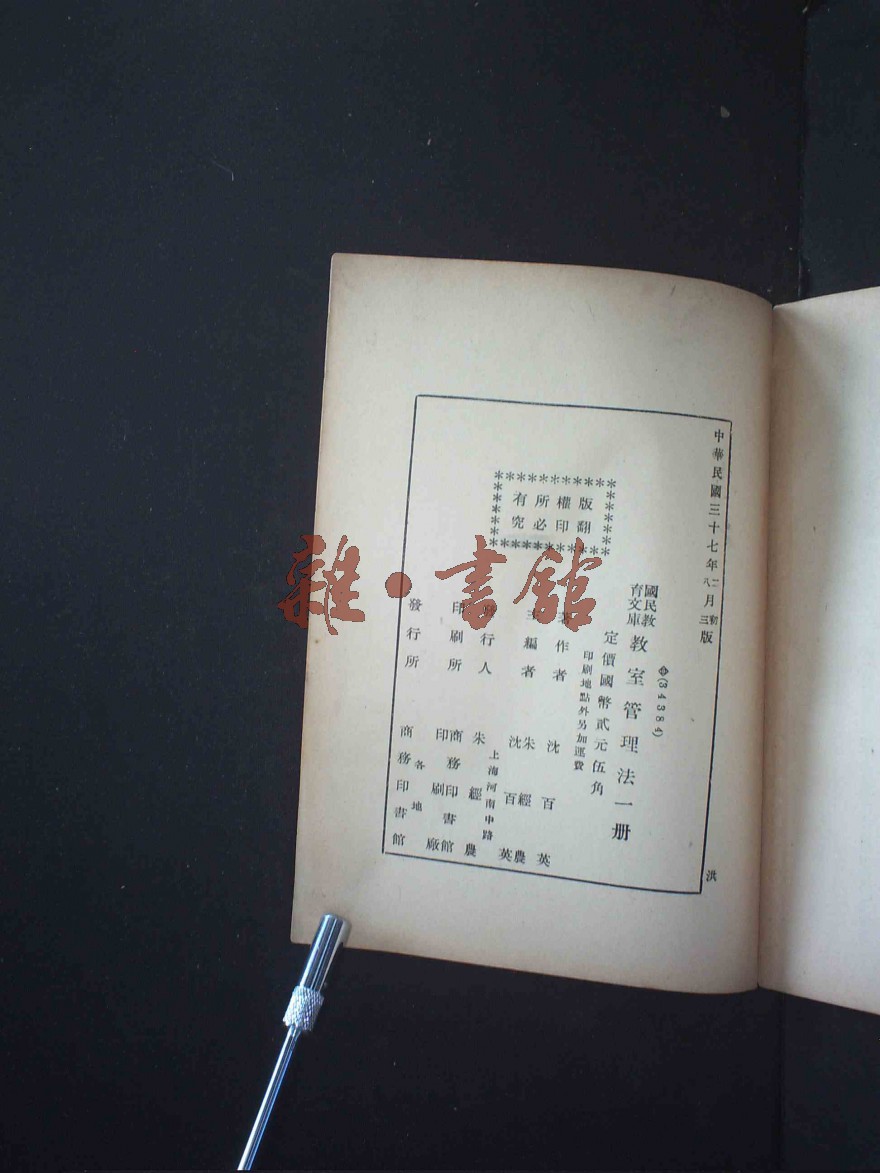 中華民國三十七年二月初版
八月三版
版權所有
翻印必究
(34384)
國民教育文庫
教室管理法一册
定價國幣貳元伍角
印刷地點外另加運費
著作者 沈百英
主編者 朱經農 沈百英
發行人 朱經農
上海河南中路
印刷所 商務印書館印刷廠
發行所 各地 商務印書館
洪
雜·書館